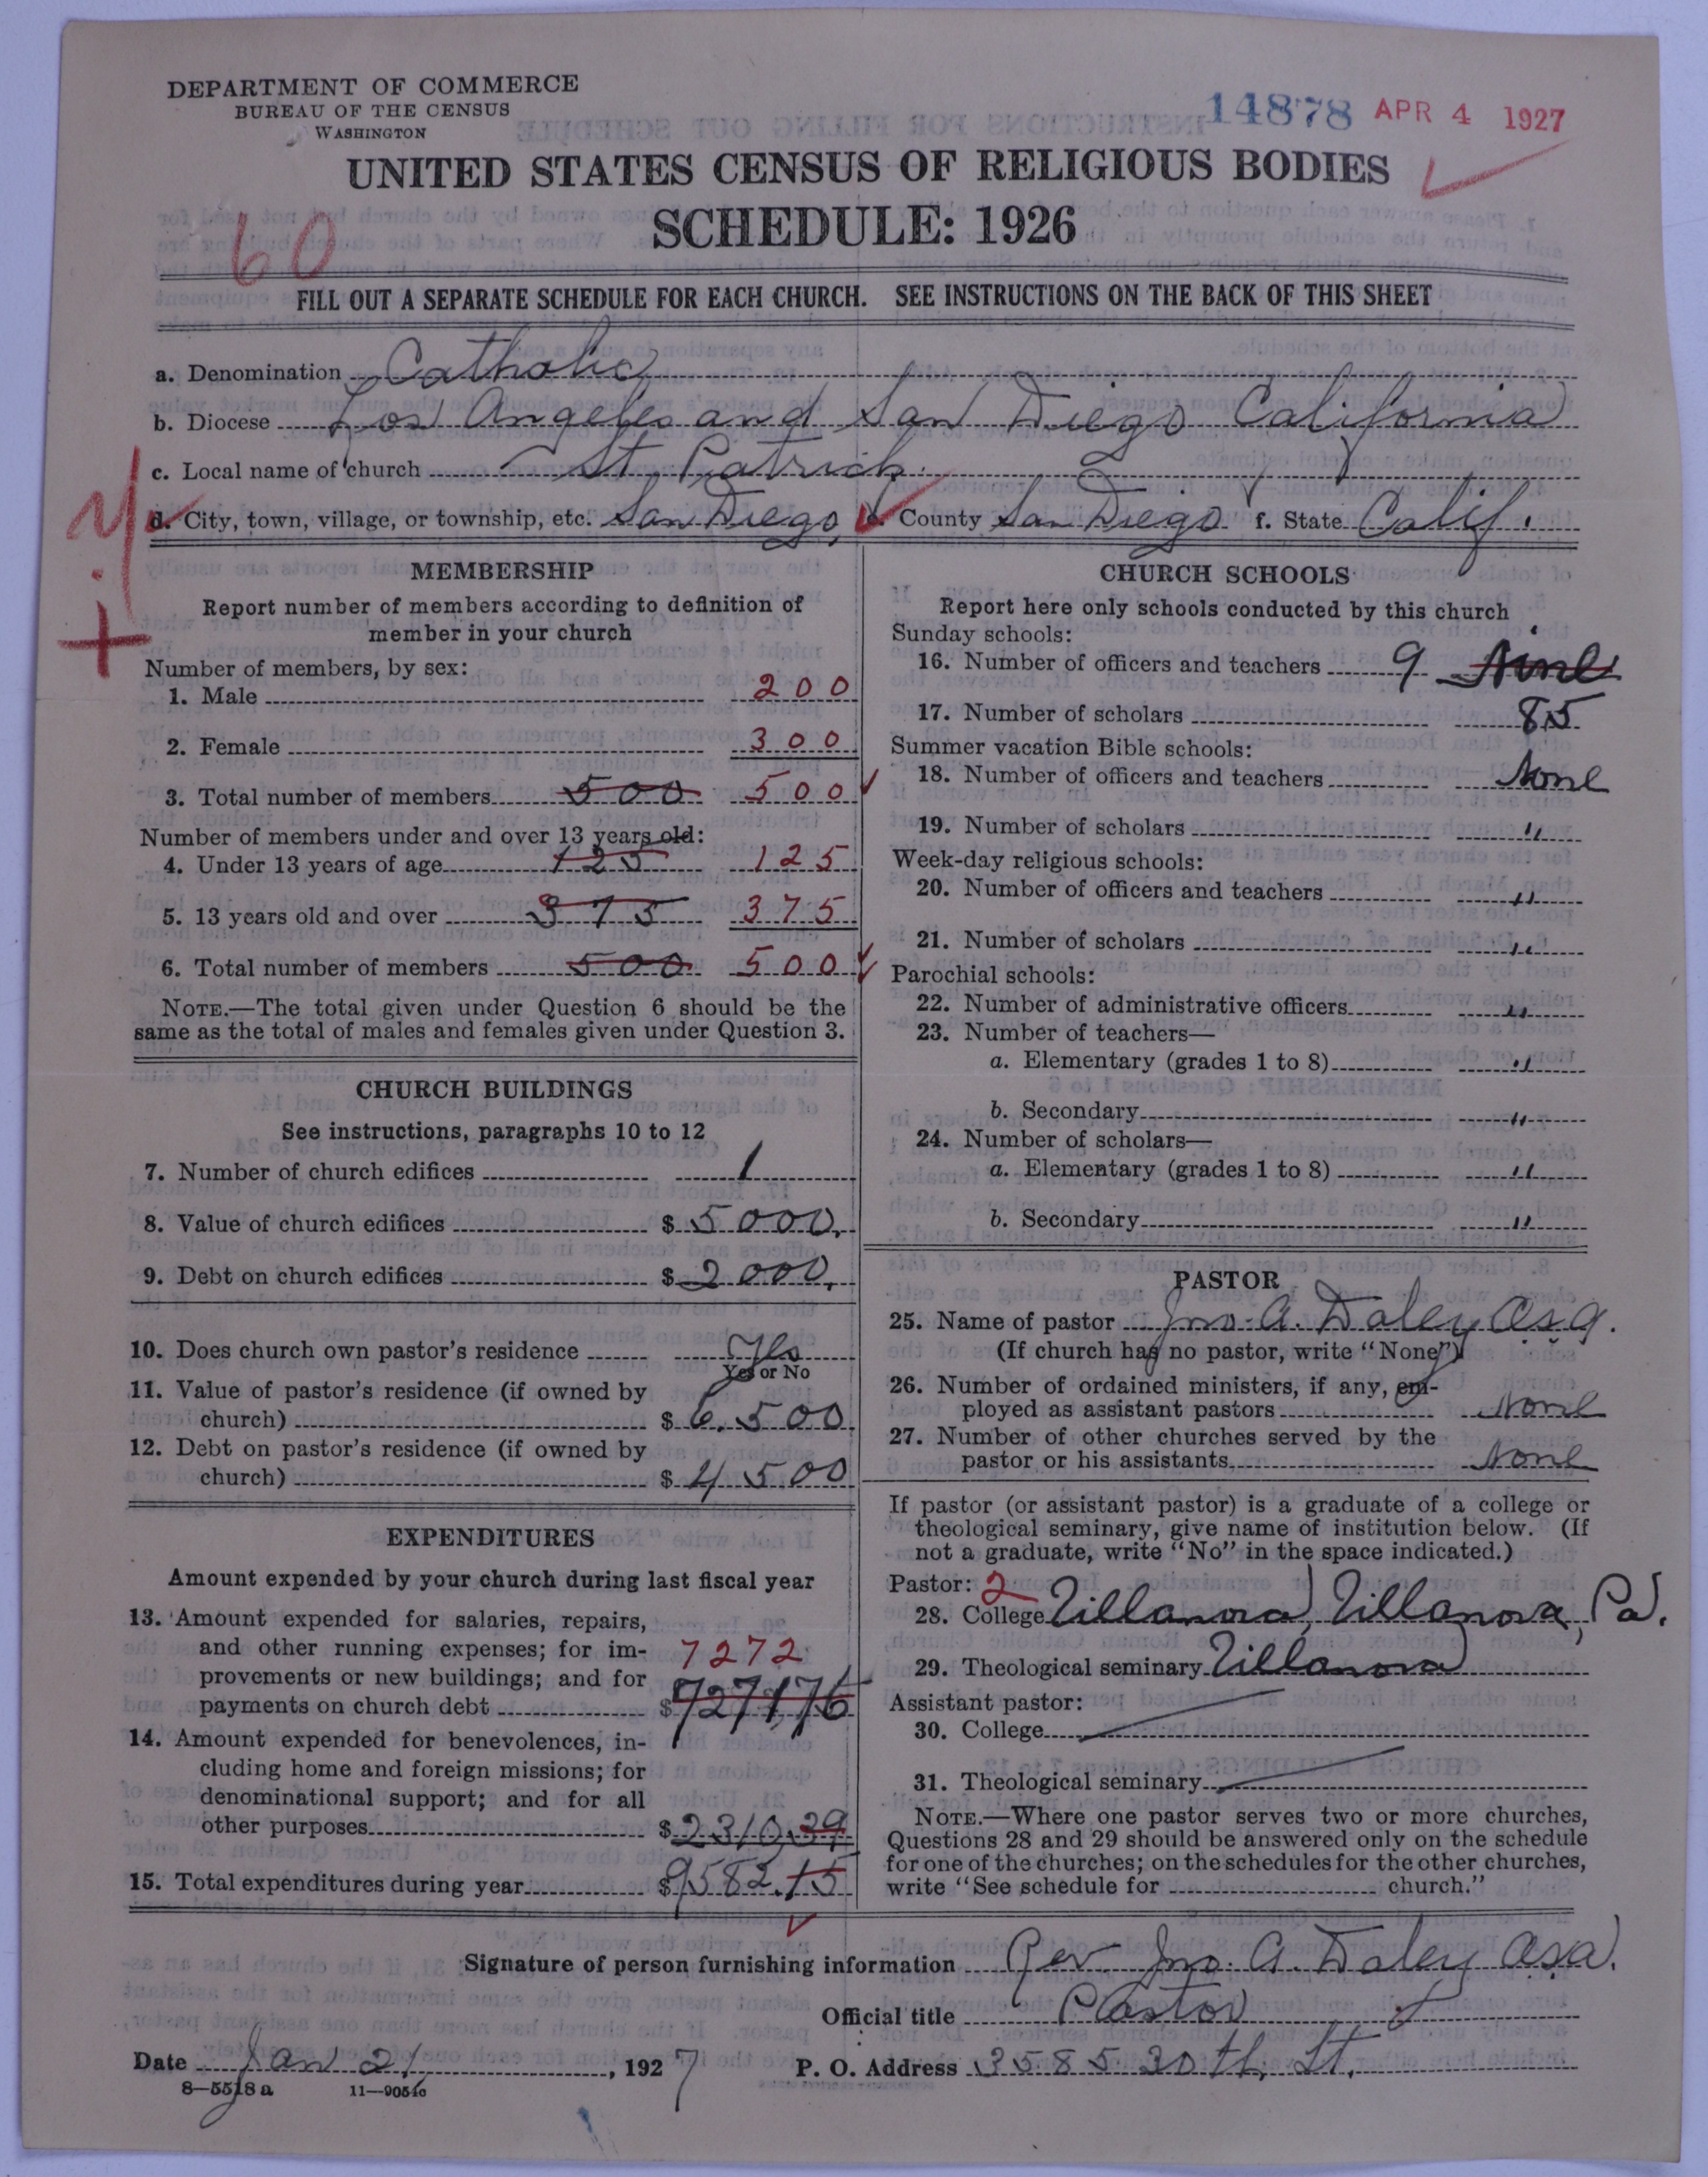 DEPARTMENT OF COMMERCE
BUREAU OF THE CENSUS
WASHINGTON
14878 APR 4 1927
UNITED STATES CENSUS OF RELIGIOUS BODIES
SCHEDULE: 1926
60
FILL OUT A SEPARATE SCHEDULE FOR EACH CHURCH. SEE INSTRUCTIONS ON THE BACK OF THIS SHEET
a. Denomination Catholic
b. Diocese Los Angeles and San Diego California
c. Local name of church St Patrick.
d. City, town, village, or township, etc. San Diego, e. County San Diego f. State Calif.
MEMBERSHIP
Report number of members according to definition of
member in your church
Number of members, by sex:
1. Male 200
2. Female 300
3. Total number of members 500 500
Number of members under and over 13 years old:
4. Under 13 years of age 125 125
5. 13 years old and over 375 375
6. Total number of members 500 500
NOTE.—The total given under Question 6 should be the
same as the total of males and females given under Question 3.
CHURCH BUILDINGS
See instructions, paragraphs 10 to 12
7. Number of church edifices 1
8. Value of church edifices $ 5000.
9. Debt on church edifices $ 2000.
10. Does church own pastor's residence Yes
Yes or No
11. Value of pastor's residence (if owned by
church) $ 6.500.
12. Debt on pastor's residence (if owned by
church) $ 4500
EXPENDITURES
Amount expended by your church during last fiscal year
13. Amount expended for salaries, repairs,
and other running expenses; for im- 7272
provements or new buildings; and for
payments on church debt $ 7271 76
14. Amount expended for benevolences, in-
cluding home and foreign missions; for
denominational support; and for all
other purposes $ 2310.39
15. Total expenditures during year $ 9582.15
CHURCH SCHOOLS
Report here only schools conducted by this church
Sunday schools:
16. Number of officers and teachers 9 None
17. Number of scholars 85
Summer vacation Bible schools:
18. Number of officers and teachers None
19. Number of scholars "
Week-day religious schools:
20. Number of officers and teachers "
21. Number of scholars "
Parochial schools:
22. Number of administrative officers "
23. Number of teachers—
a. Elementary (grades 1 to 8) "
b. Secondary "
24. Number of scholars—
a. Elementary (grades 1 to 8) "
b. Secondary "
PASTOR
25. Name of pastor Jno. A. Daley O.S.A.
(If church has no pastor, write "None")
26. Number of ordained ministers, if any, em-
ployed as assistant pastors None
27. Number of other churches served by the
pastor or his assistants None
If pastor (or assistant pastor) is a graduate of a college or
theological seminary, give name of institution below. (If
not a graduate, write "No" in the space indicated.)
Pastor: 2
28. College Villanova, Villanova, Pa.
29. Theological seminary Villanova
Assistant pastor:
30. College
31. Theological seminary
NOTE.—Where one pastor serves two or more churches,
Questions 28 and 29 should be answered only on the schedule
for one of the churches; on the schedules for the other churches,
write "See schedule for church."
Signature of person furnishing information Rev. Jno. A. Daley O.S.A.
Official title Pastor
Date Jan 21, 1927 P. O. Address 3585 30th St.
8—5518 a 11—9054c